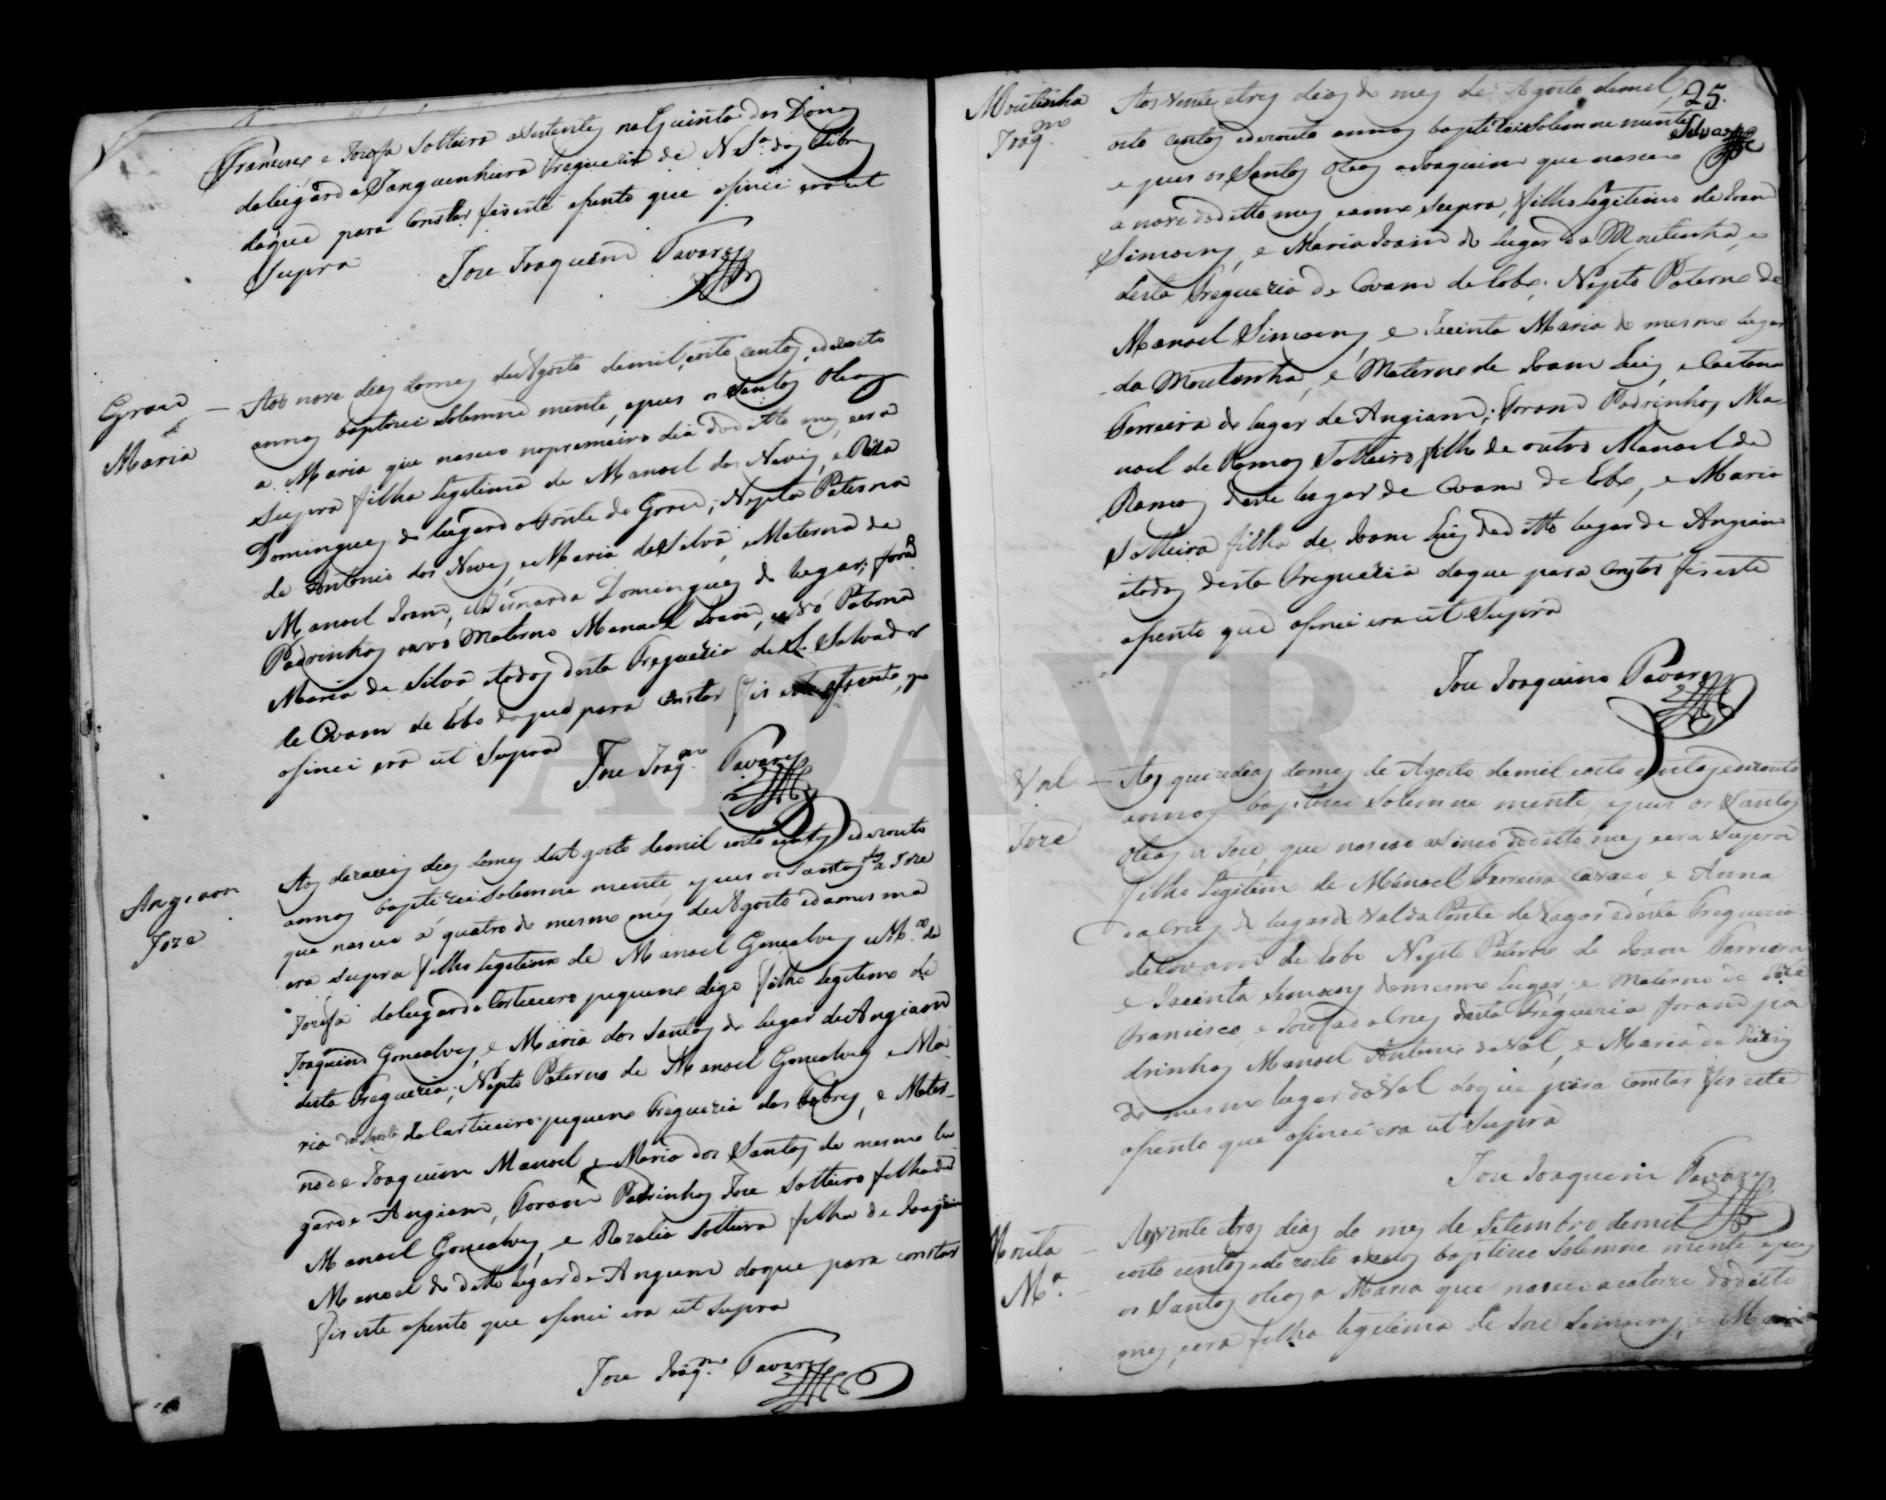 Francisco e Jozefa Solteira asestentes na Quinta dos Dones
do lugar da Tanguenheira Freguezia de N. Sª. das Febres
do que para constar fis este asento que asinei era ut
Supra Joze Joaquim Tavares
Grou
Maria
Aos nove dias do mes de Agosto de mil, oito centos, e dezoito
annos baptizei Solemne mente, e pus os Santos Oleos
a Maria que nasceo no premeiro dia do ditto mes, e era
Supra filha legitima de Manoel dos Neves, e Rita
Domingues do lugar da Fonte do Grou; Nepta Paterna
de Antonio dos Neves, e Maria da Silva, e Materna de
Manoel Joam, e Bernarda Domingues do lugar; foraõ
Padrinhos o avo Materno Manoel Joam, e avó Paterna
Maria da Silva, e todos desta Freguezia de S. Salvador
de Covam de Lobo do que para constar fis este asento, que
asinei era ut Supra Joze Joaqm. Tavares
Angeaon
Joze
Aos dezaceis dias do mes de Agosto de mil oito centos e dezouto
annos baptizei Solemne mente, e pus os Santos a Joze
que nasceo a quatro do mesmo mes de Agosto e da mesma
era Supra filho legitimo de Manoel Goncalves e Mª. da
Jozefa do lugar do Corticeiro pequeno digo filho legitimo de
Joaquim Goncalves, e Maria dos Santos do lugar de Angiam
desta Freguezia; Nepto Paterno de Manoel Goncalves e Ma
ria dos Santos do Corticeiro pequeno Freguezia das Febres, e Mater-
no de Joaquim Manoel, e Maria dos Santos do mesmo lu
gar de Angiam, Foram Padrinhos Joze Solteiro filho de
Manoel Goncalves, e Rozalia Solteira filha de Joaquim
Manoel do ditto lugar de Angiam do que para constar
fis este asento que asinei era ut Supra
Joze Joaqm. Tavares
25.
Silvas
Moutinha
Joaqm.
Aos vente, e tres dias do mes de Agosto de mil,
oito centos e dezouto annos baptizei Solemne mente
e pus os Santos Oleos a Joaquim que nasceo
a nove do ditto mes, e anno Supra, filho legitimo de Joam
Simoens, e Maria Joam do lugar da Moutinha, e
desta Freguezia de Covam de Lobo; Nepto Paterno de
Manoel Simoens, e Jacinta Maria do mesmo lugar
da Moutinha, e Materno de Joam Luis, e Caetana
Ferreira do lugar de Angiam; Foram Padrinhos Ma-
noel de Ramos Solteiro filho de outro Manoel de
Ramos deste lugar de Covam de Lobo, e Maria
Solteira filha de Joam Luis do ditto lugar de Angiam
e todos desta Freguezia do que para constar fis este
asento que asinei era ut Supra
Joze Joaquim Tavares
Val
Joze
Aos quinze dias do mes de Agosto de mil e oito centos e dezouto
annos baptizei Solemne mente, e pus os Santos
Oleos a Joze, que nasceo a sinco do ditto mes e era Supra
filho legitimo de Manoel Ferreira e Anna
da Cruz do lugar do Val da Ponte de Vagos e desta Freguezia
de Covam de Lobo Nepto Paterno de Joam Ferreira
e Jacinta Simoens do mesmo lugar; e Materno de Joze
Francisco, e Jozefa da Cruz desta Freguezia foram pa
drinhos Manoel Antonio do Val, e Maria de
do mesmo lugar do Val do que para constar fis este
asento que asinei era ut Supra
Joze Joaquim Tavares
Mouta
Mª.
Aos vente e tres dias do mes de Setembro de mil
oito centos e dezoito annos baptizei Solemne mente e pus
os Santos oleos a Maria que nasceo a catorze do ditto
mes, e era filha legitima de Joze Simoens, e Maria
ADAVR